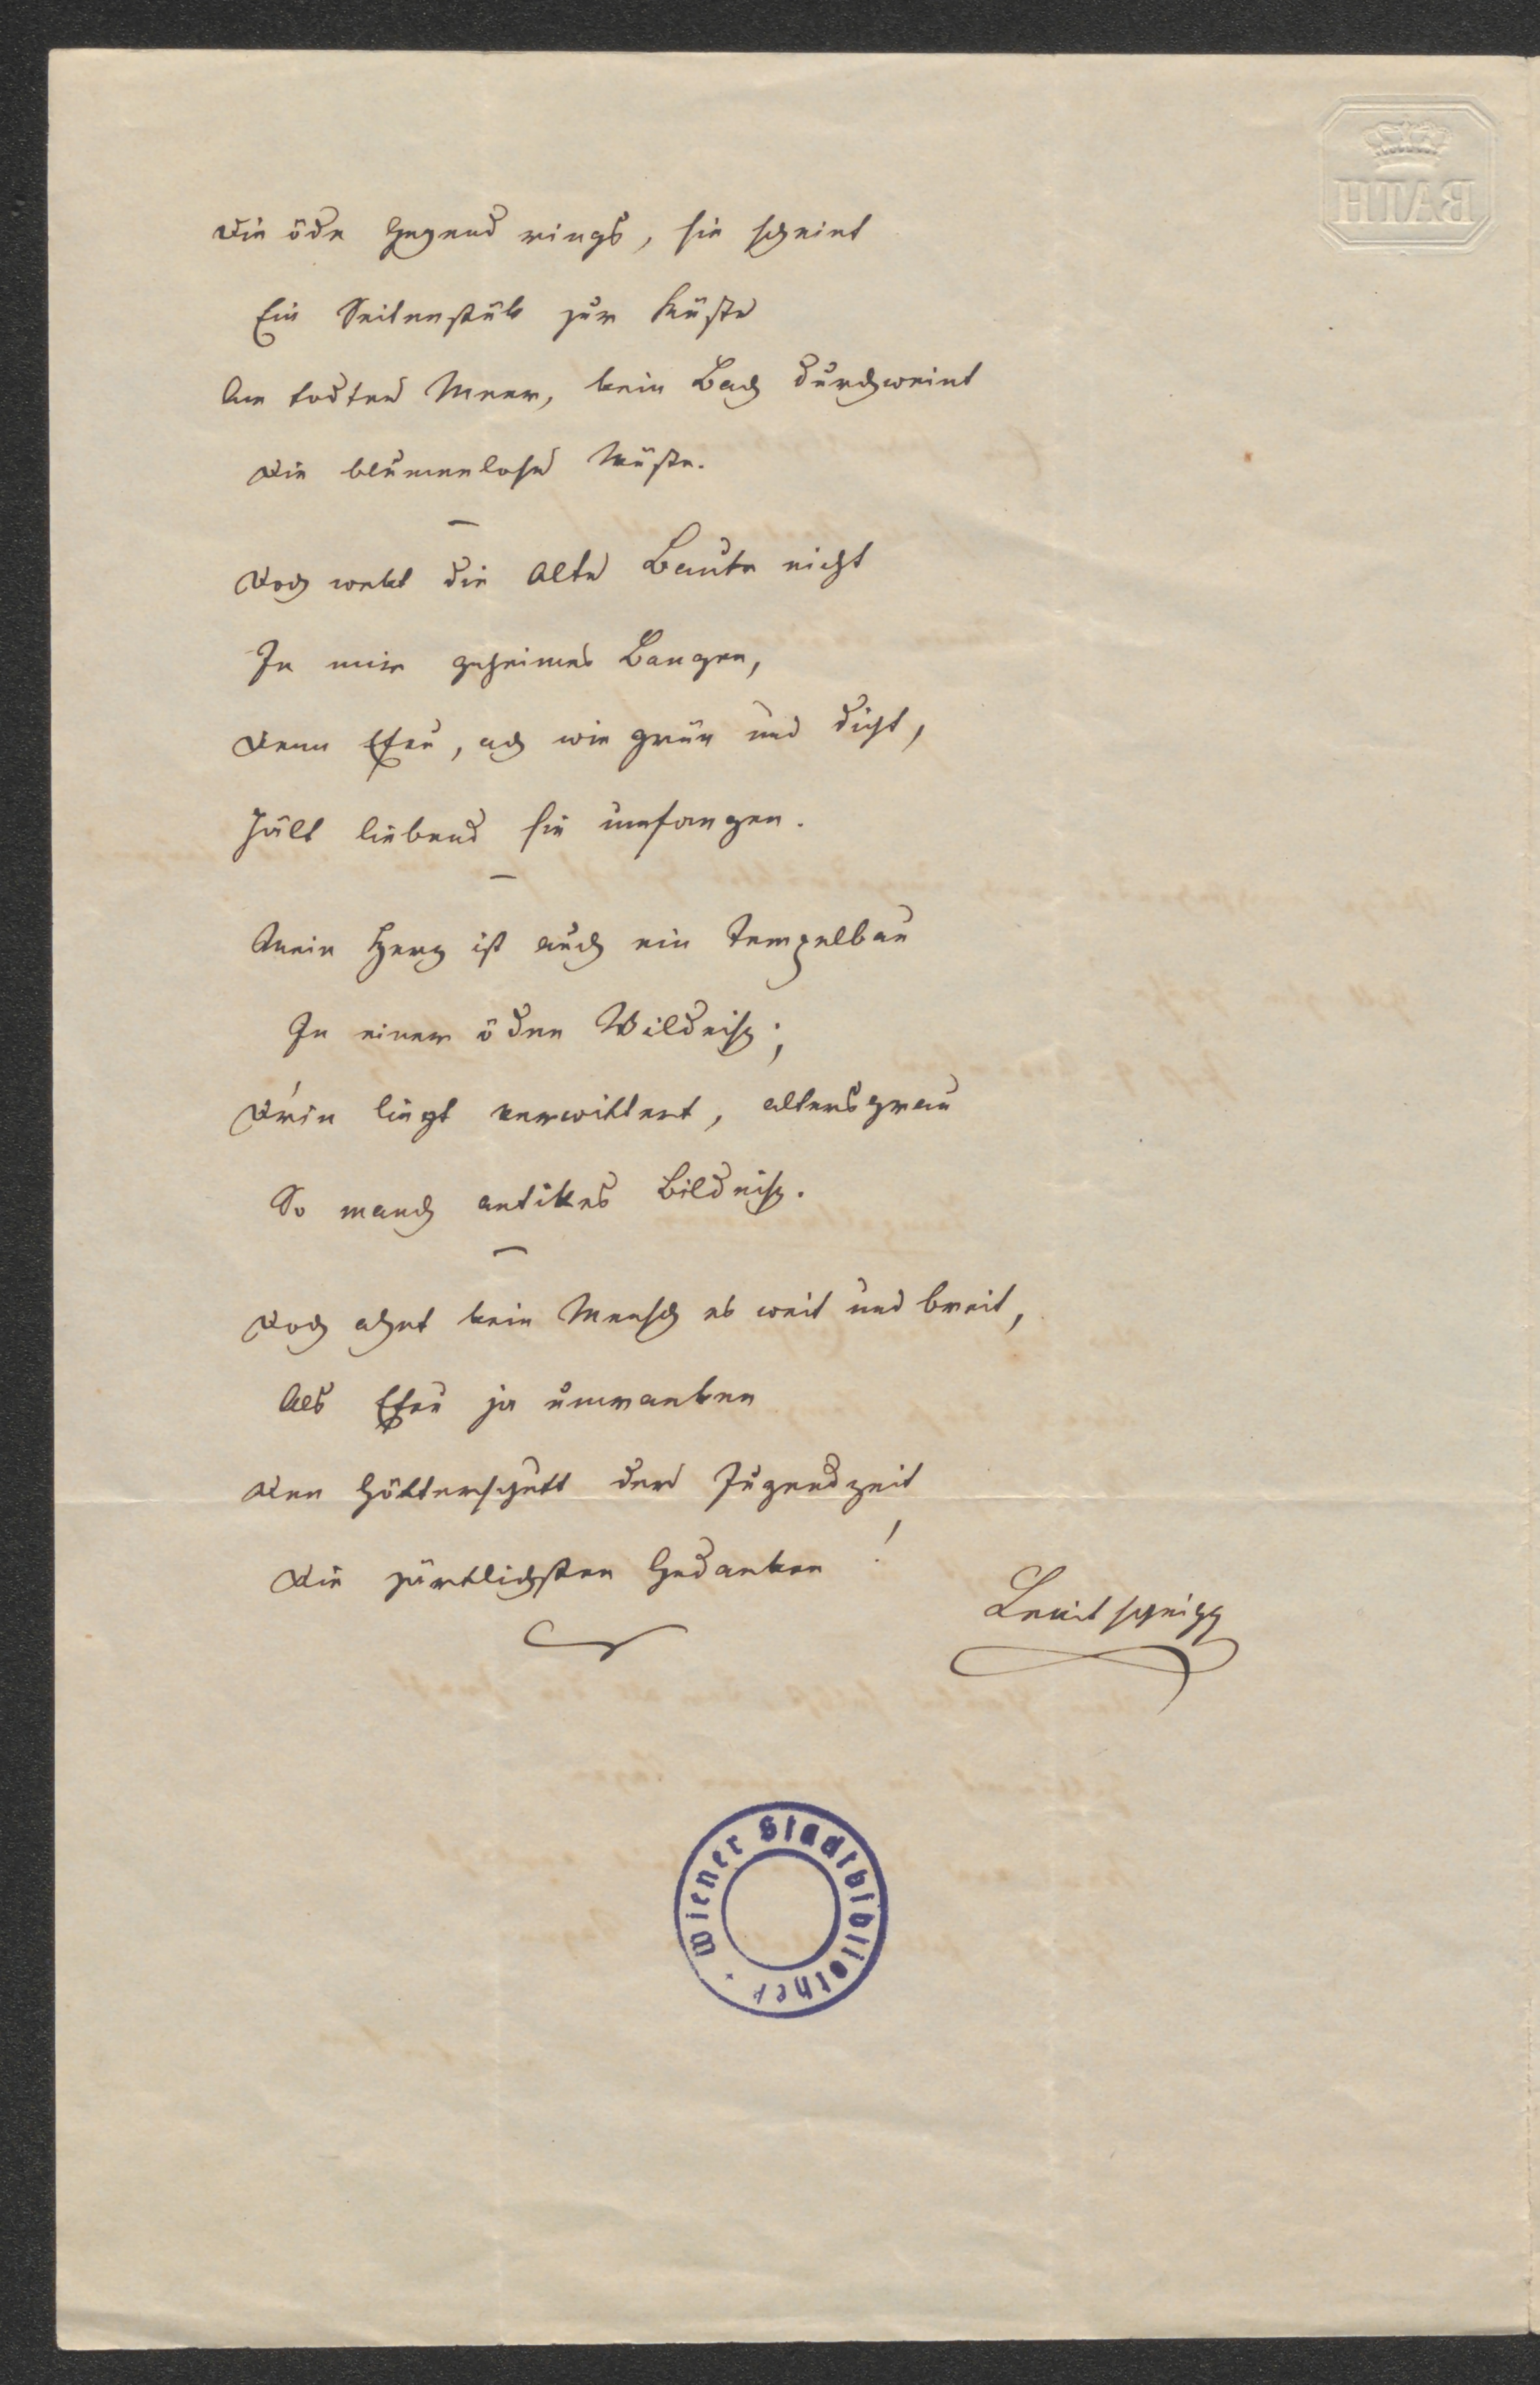 BATH
Die öde Gegend rings, sie scheint
Ein Seitenstük zur Küste
Am todten Meer, kein Bach durchweint
Die blumenlose Wüste.
–
Doch wekt die alte Baute nicht
In mir geheimes Bangen,
Denn Efeu, ach wie grün und dicht,
Hält liebend sie umfangen.
–
Mein Herz ist auch ein Tempelbau
In einer öden Wildniß;
D'rin liegt verwittert, altersgrau
So manch antikes Bildniß.
–
Doch ahnt kein Mensch es weit und breit,
Als Efeu ja umranken
Den Götterschutt der Jugendzeit
Die zärtlichsten Gedanken!
Levitschnigg
Wiener Stadtbibliothek